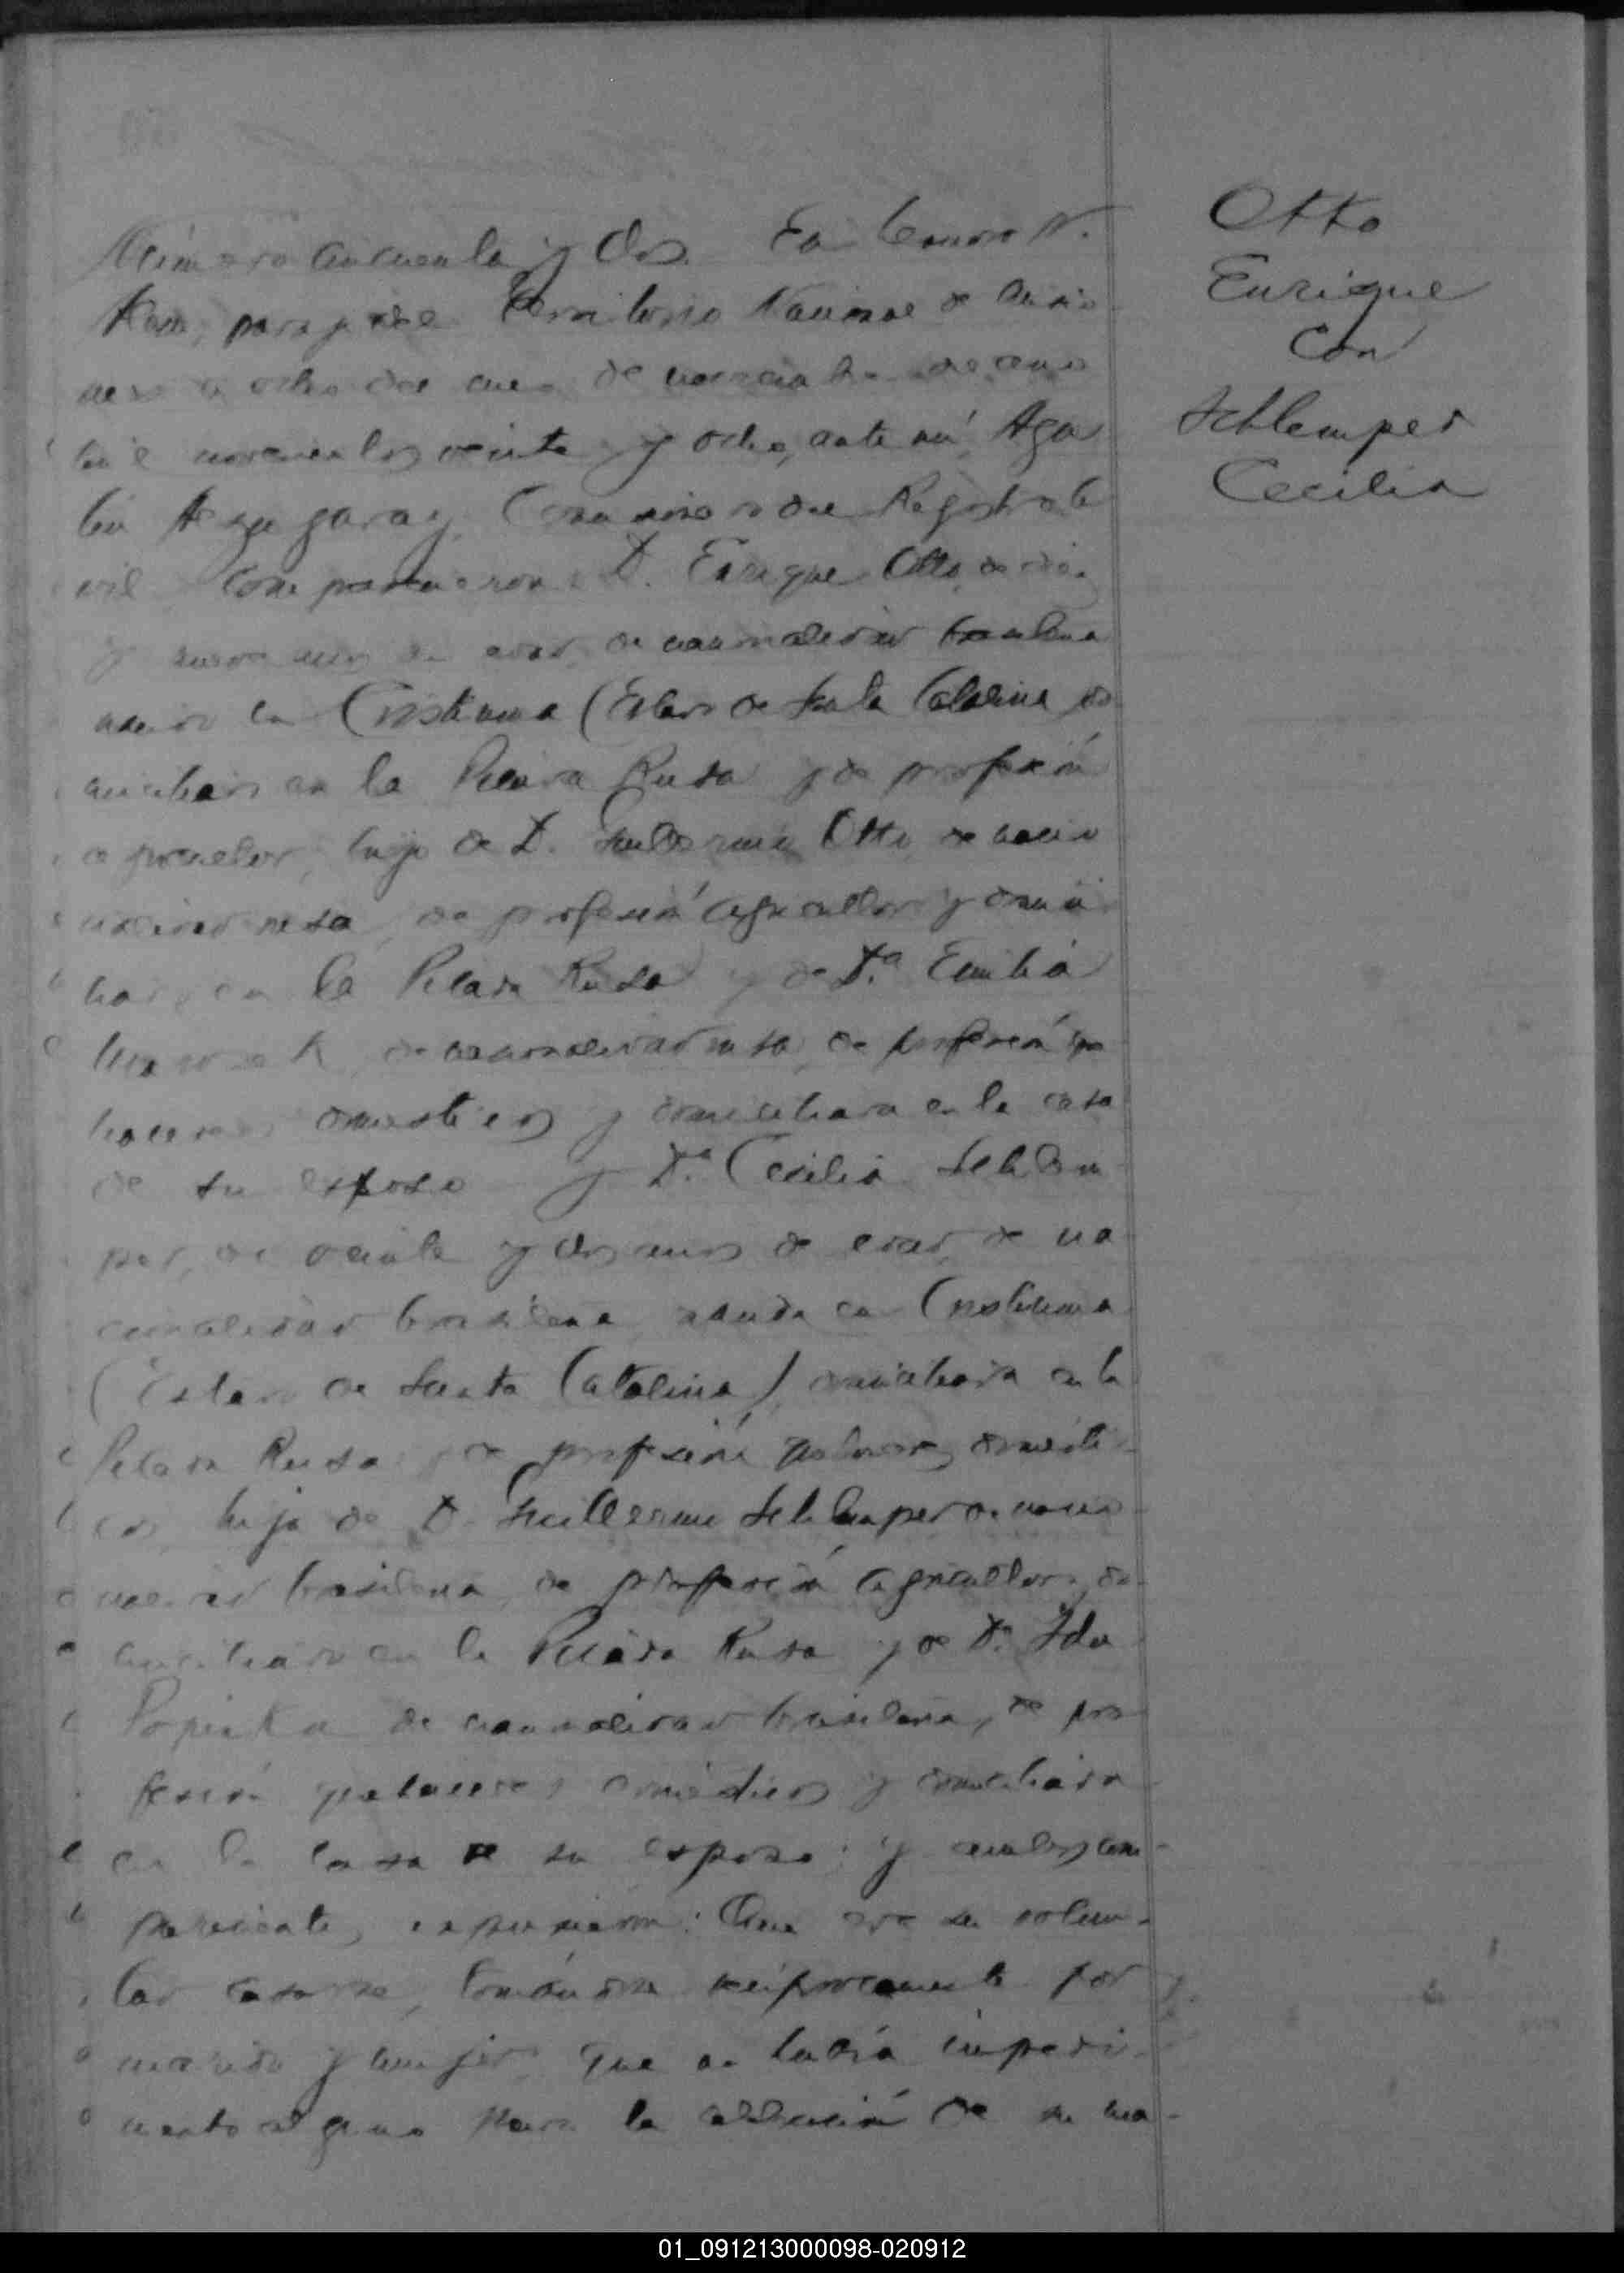 Otto
Enrique
Con
Schlemper
Cecilia
Número cincuenta y dos. En Cerro N.
paraje del Territorio Nacional de Misio
nes a ocho del mes de de
mil novecientos veinte y ocho, ante mí, Aga
del Registro Ci
vil Comparecieron: D. Enrique Otto, de diez
y nueve años de edad, de nacionalidad brasilera
nacido en Cristiuma (Estado de Santa Catalina do
miciliado en la Picada Rusa y de profesión
agricultor, hijo de D. Guillermo Otto, de nacio
nalidad rusa, de profesión agricultor y domici
liado en la Picada Rusa y de Da. Emilia
de nacionalidad rusa, de profesión que
haceres domésticos y domiciliada en la casa
de su esposo y Da. Cecilia Schlem
per, de veinte y dos años de edad, de na
cionalidad brasilera nacida en Cristiuma
(Estado de Santa Catalina) domiciliada en la
Picada Rusa de profesión quehaceres domésti
cos, hija de D. Guillermo Schlemper de nacio
nalidad brasilera, de profesión agricultor, do
miciliado en la Picada Rusa y de Da. Ida
de nacionalidad brasilera, de pro
fesión quehaceres domésticos y domiciliada
en la casa de su esposo; y ambos com-
parecientes expusieron: Que era su volun-
tad casarse, tomándose recíprocamente por
marido y mujer, que no había impedi-
mento alguno para la celebración de su ma-
01_091213000098-020912